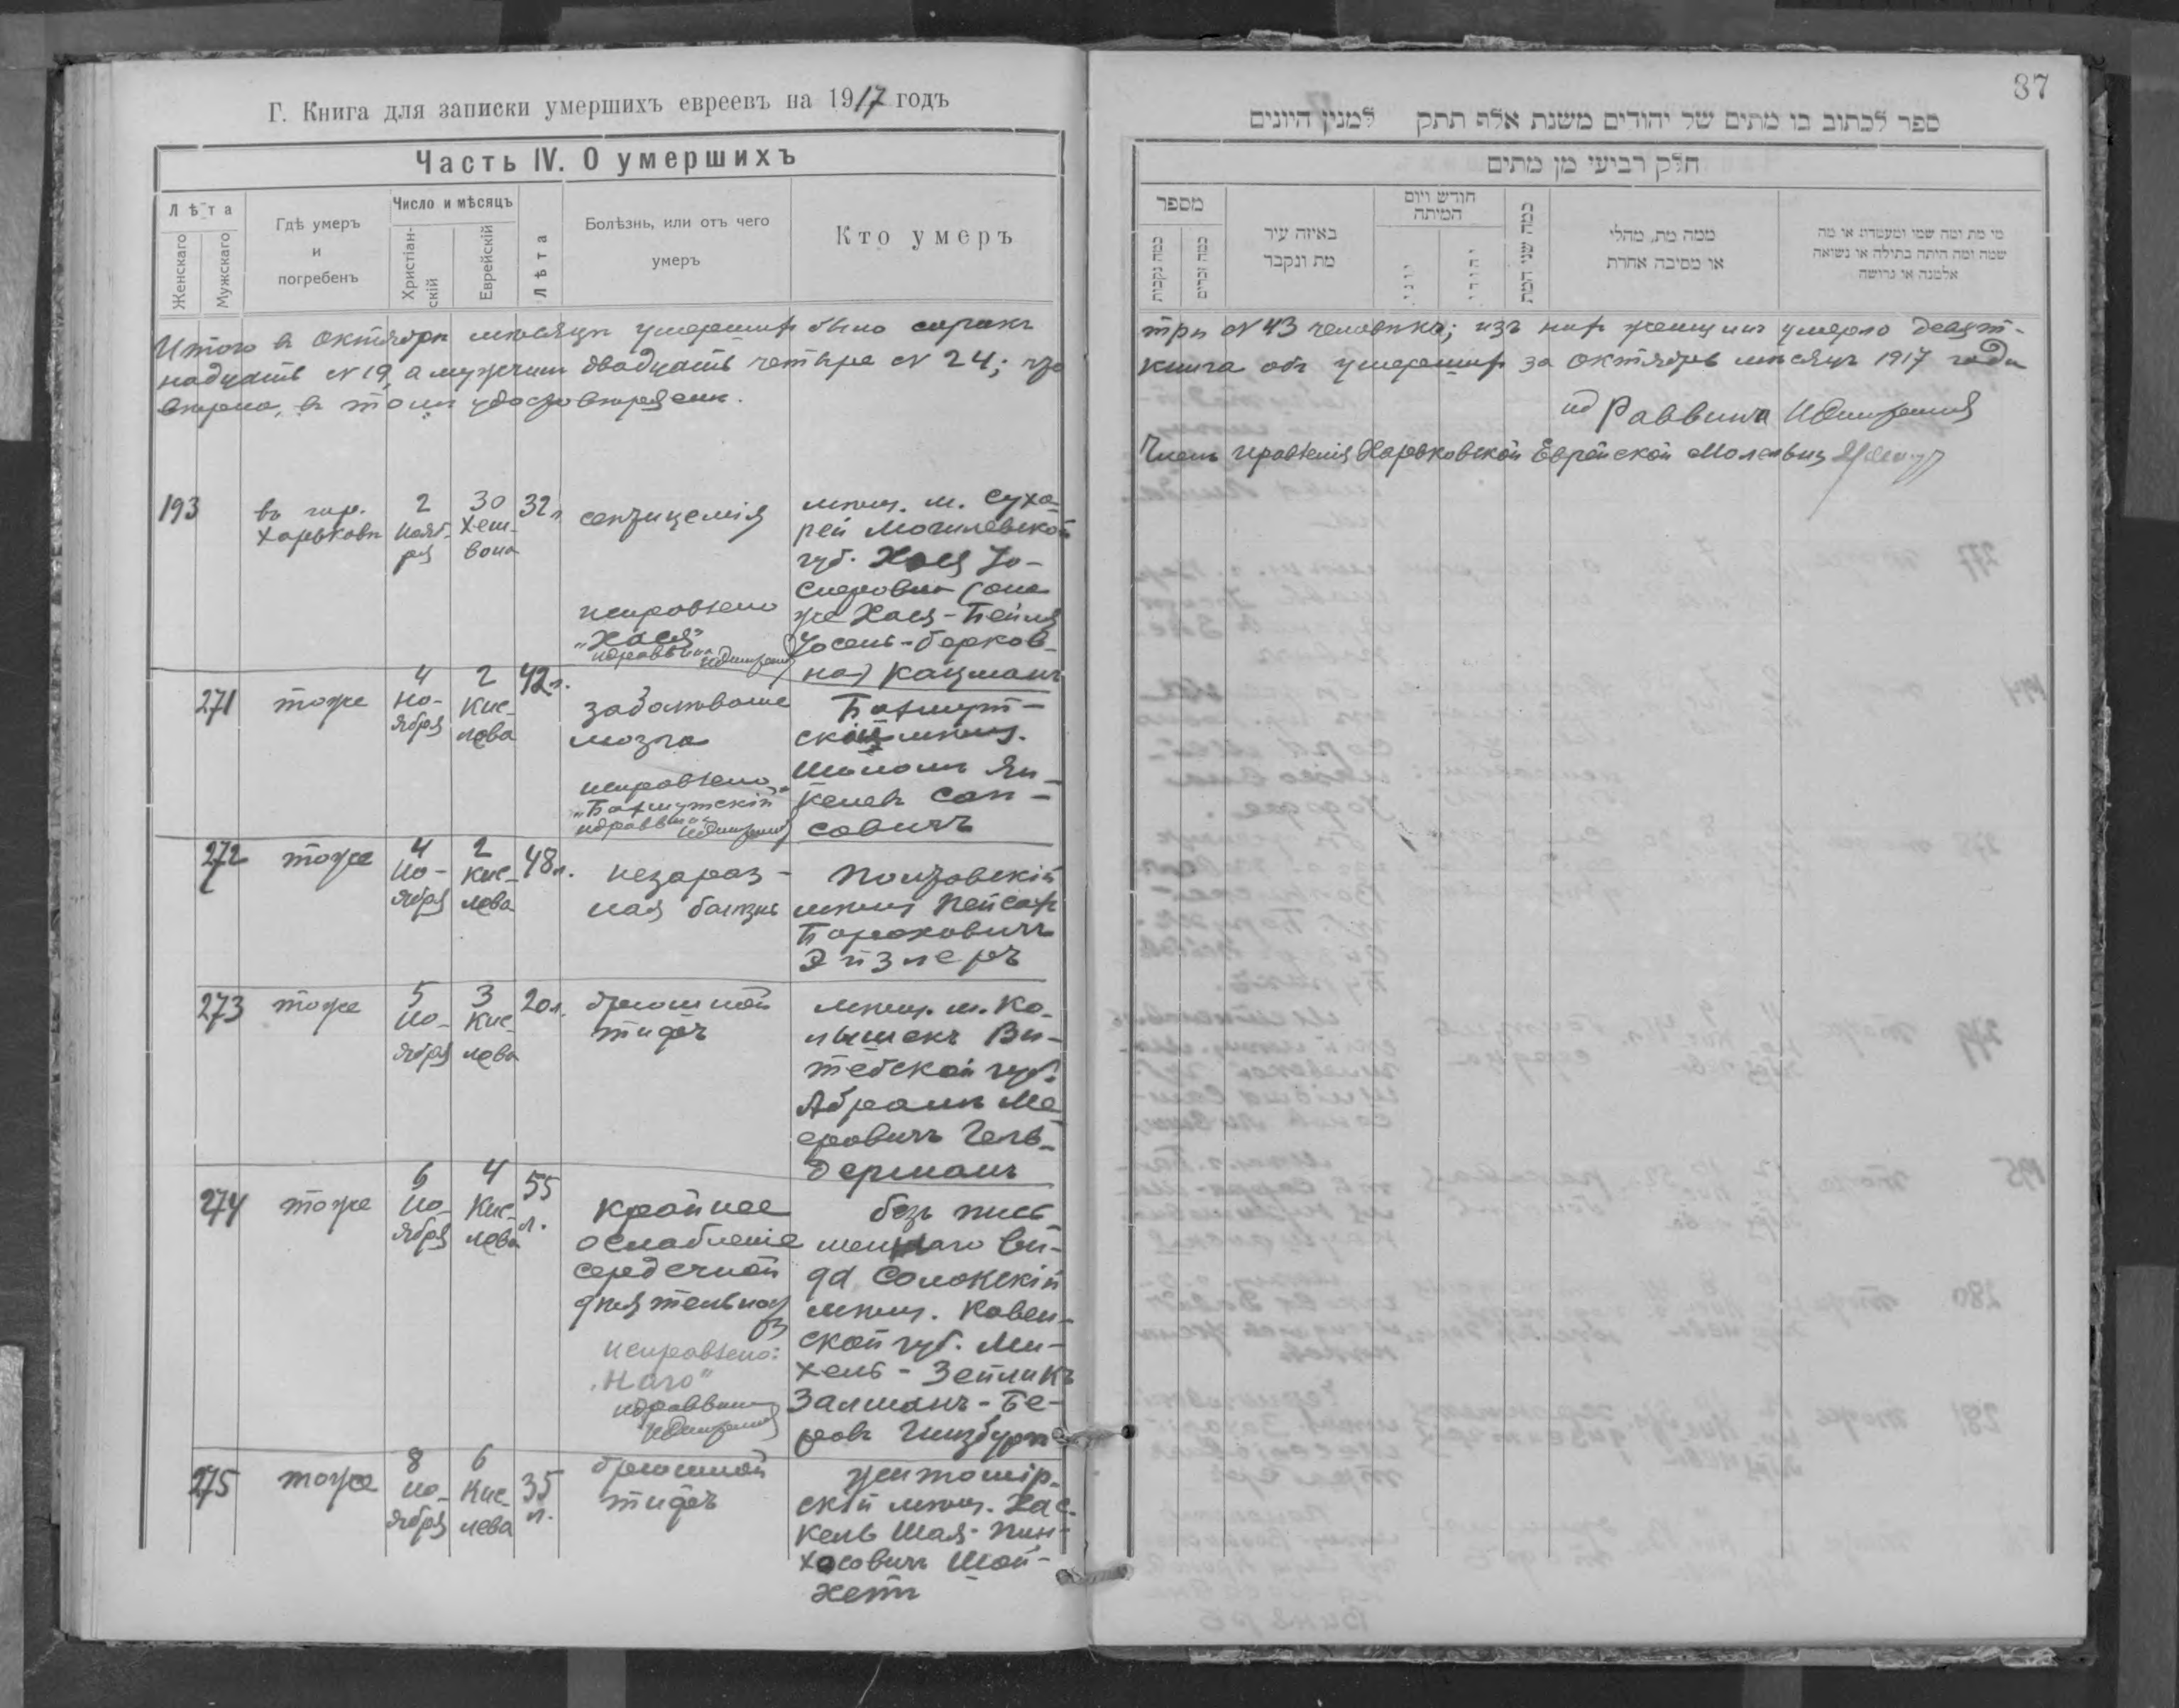 Г. Книга для записки умершихъ евреевъ на 1917 годъ
Часть IV. О умершихъ
Лѣта
Женскаго
Мужскаго
Гдѣ умеръ
и
погребенъ
Число и мѣсяцъ
Христіан-
скій
Еврейскій
Лѣта
Болѣзнь, или отъ чего
умеръ
Кто умеръ
Итого в октябрѣ мѣсяцѣ умершихъ было сорокъ
надцать № 19, а мужчинъ двадцать четыре № 24; что
вѣрно, в томъ удостовѣряемъ.
193
въ гор.
Харьковѣ
2
Нояб-
ря
30
Хеш-
вона
32 л.
септицемія
исправлено
"Хася"
ид раввина
мѣщ. м. Сухо-
рей Могилевской
губ. Хася Іо-
сифовна (она
же Хася-Бейля
Іосель-Берков-
на) Кацманъ
271
тоже
4
Но-
ября
2
Кис-
лева
42 л.
заболѣваніе
мозга
исправлено
"Бахмутскій"
ид раввина
Бахмут-
скій мѣщ.
Шоломъ Ян-
келев Сап-
совичъ
272
тоже
4
Но-
ября
2
Кис-
лева
48 л.
незараз-
ная болѣзнь
Полтавскій
мѣщ. Пейсахъ
Бороховичъ
Эйзлеръ
273
тоже
5
Но-
ября
3
Кис-
лева
20 л.
брюшной
тифъ
мѣщ. м. Ко-
лышекъ Ви-
тебской губ.
Абрамъ Ме-
еровичъ Гель-
дерманъ
274
тоже
6
Но-
ября
4
Кис-
лева
55
л.
крайнее
ослабленіе
сердечной
дѣятельнос
ти
исправлено:
"наго"
ид раввина
безъ пись-
меннаго ви-
да Солокскій
мѣщ. Ковен-
ской губ. Ми-
хель-Зейликъ
Залманъ-Бе-
ровъ Гинзбургъ
275
тоже
8
Но-
ября
6
Кис-
лева
35
л.
брюшной
тифъ
Житомір-
скій мѣщ. Хас-
кель Шая-Пин-
хосовичъ Шой-
хетъ
37
ספר לכתוב בו מתים של יהודים משנת אלף תתק למנין היונים
חלק רביעי מן מתים
מספר
כמה נקבות
כמה זכרים
באיזה עיר
מת ונקבר
חודש ויום
המיתה
יוני
יהודי
כמה שני המת
ממה מת, מחלי
או מסיבה אחרת
מי מת ומה שמי ומעמדו או מה
שמה ומה היתה בתולה או נשואה
אלמנה או גרושה
три № 43 человѣка; изъ нихъ женщинъ умерло девят-
книга объ умершихъ за октябрь мѣсяцъ 1917 года
ид Раввина
Членъ правленія Харьковской Еврейской Молельни